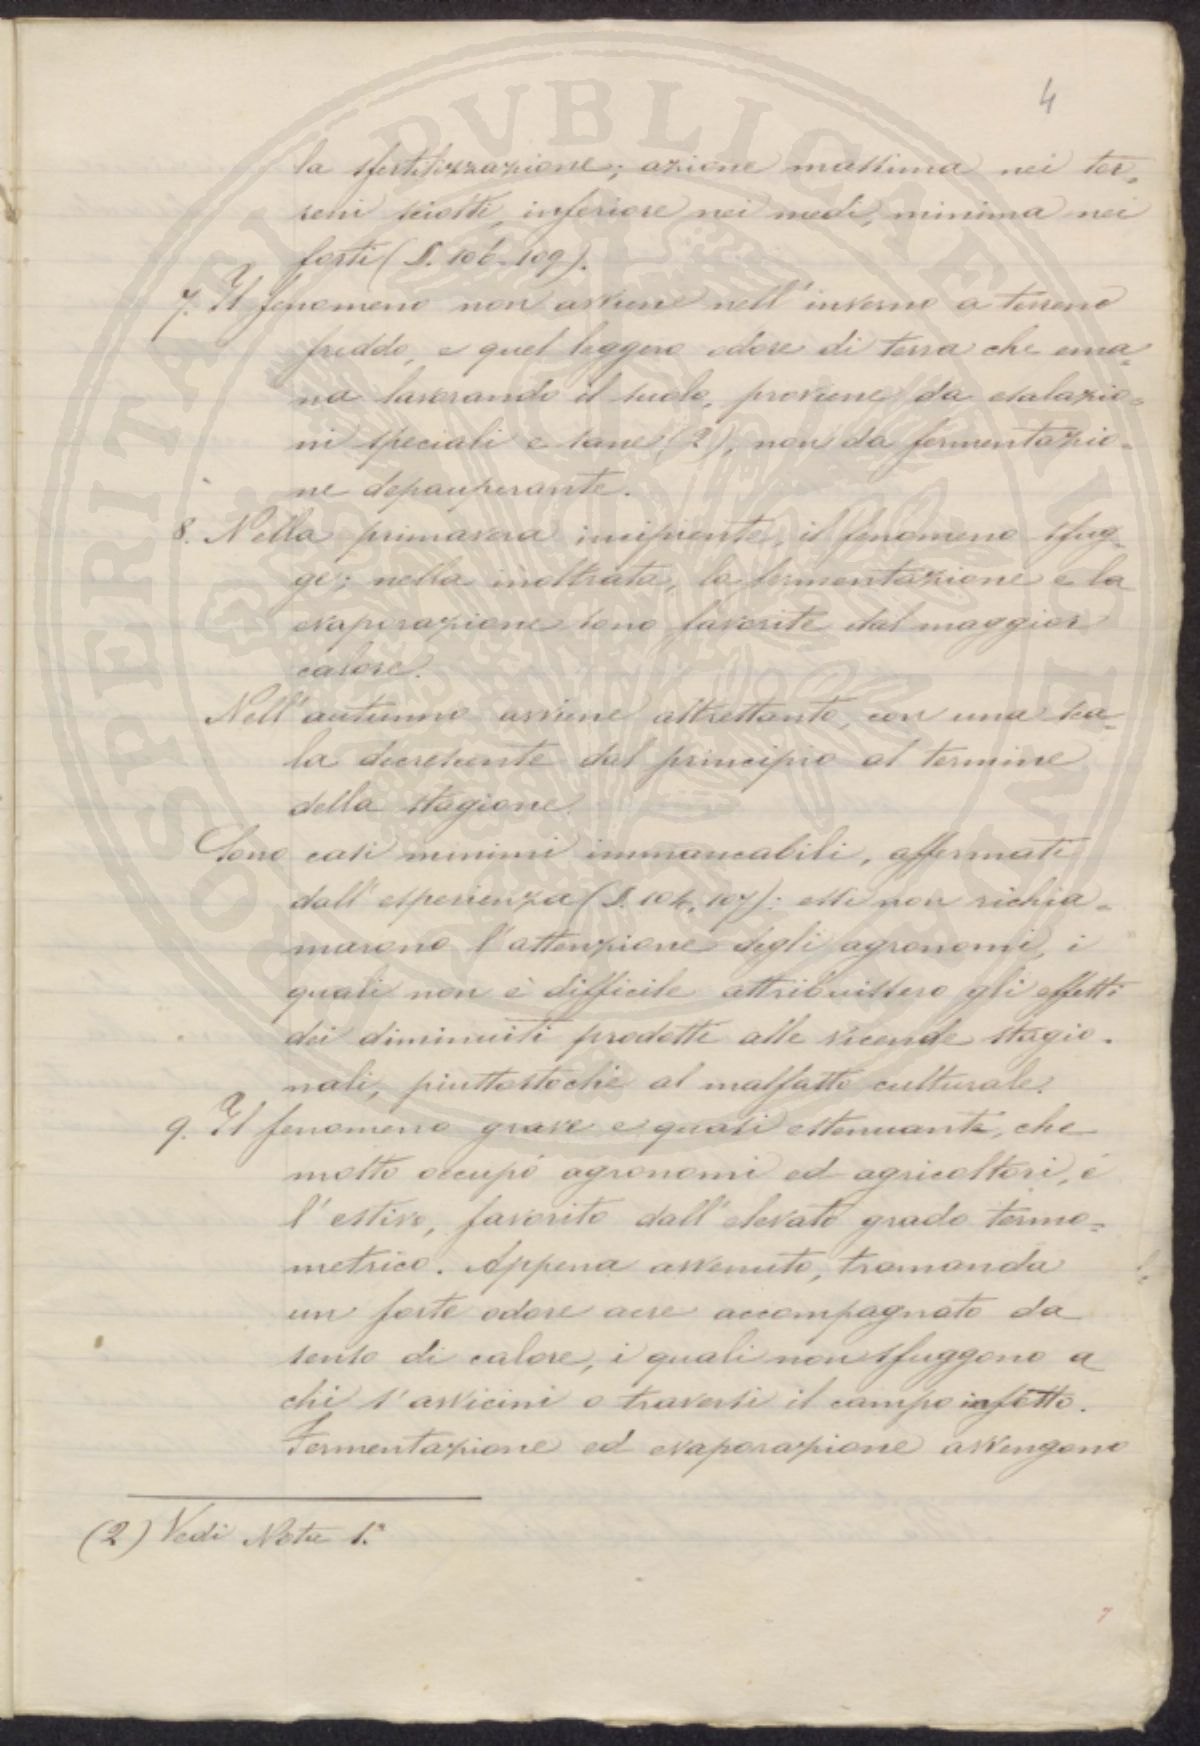 4
la sfertilizzazione; azione massima nei ter=
reni sciolti, inferiore nei medi, minima nei
forti (§. 106-109).
7. Il fenomeno non avviene nell'inverno a terreno
freddo, e quel leggero odore di terra che ema=
na lavorando il suolo, proviene da esalazio=
ni speciali e sane (2), non da fermentazio=
ne depauperante.
8. Nella primavera incipiente, il fenomeno sfug=
ge; nella inoltrata, la fermentazione e la
evaporazione sono favorite dal maggior
calore.
Nell'autunno avviene altrettanto, con una sca=
la decrescente dal principio al termine
della stagione.
Sono casi minimi immancabili, affermati
dall'esperienza (§. 104, 107): essi non richia=
marono l'attenzione degli agronomi, i
quali non è difficile attribuissero gli effetti
dei diminuiti prodotti alle vicende stagio=
nali, piuttostochè al malfatto culturale.
9. Il fenomeno grave e quasi estenuante, che
molto occupò agronomi ed agricoltori, è
l'estivo, favorito dall'elevato grado termo=
metrico. Appena avvenuto, tramanda
un forte odore acre accompagnato da
senso di calore, i quali non sfuggono a
chi s'avvicini o traversi il campo infetto.
Fermentazione ed evaporazione avvengono
(2) Vedi Nota 1.ª